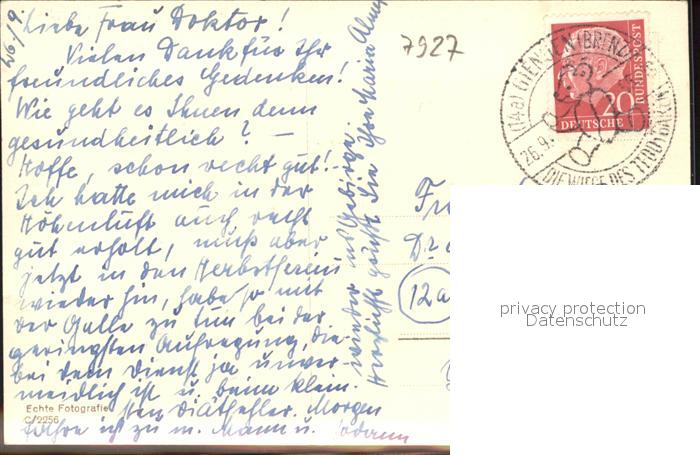 26/9.
Liebe Frau Doktor!
Vielen Dank für Ihr
freundliches Gedenken!
Wie geht es Ihnen denn
gesundheitlich? —
Hoffe, schon recht gut!
Ich hatte mich in der
Höhenluft auch recht
gut erholt, muß aber
jetzt in den Herbstferien
wieder hin, habe so mit
der Galle zu tun bei der
geringsten Aufregung, die
bei dem Dienst ja unver-
meidlich ist u. beim klein-
sten Diätfehler. Morgen
fahre ich zu m. Mann u. sodann
wieder ins Gebirge.
Herzlichst grüßt Sie Ihre Maria
7927
(14a) GIENGEN (BRENZ)
26.9.
DIE WIEGE DES TEDDYBÄREN
20
DEUTSCHE
BUNDESPOST
Fr
Dr.
12a
privacy protection
Datenschutz
Echte Fotografie
C/2256